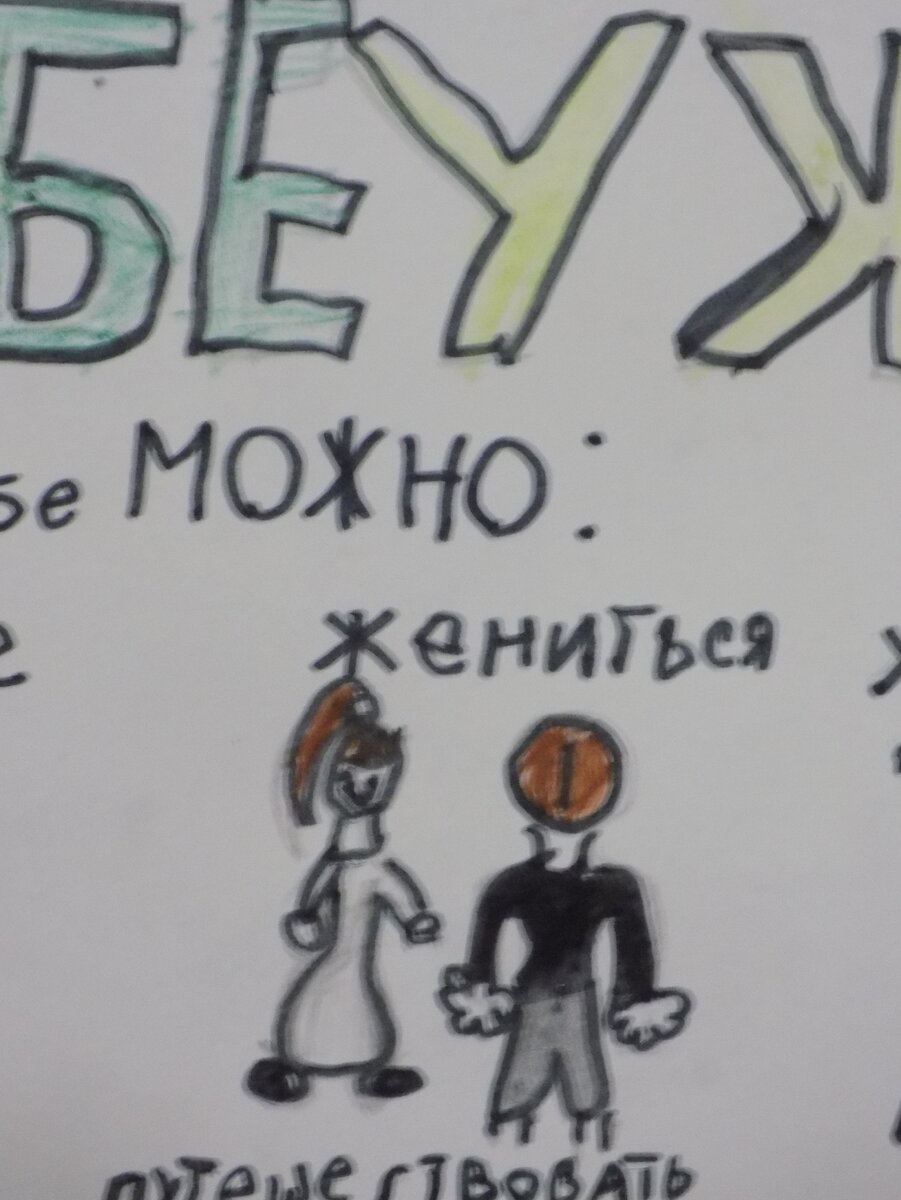 БЕУЖ
бе МОЖНО:
е жениться
путешествовать